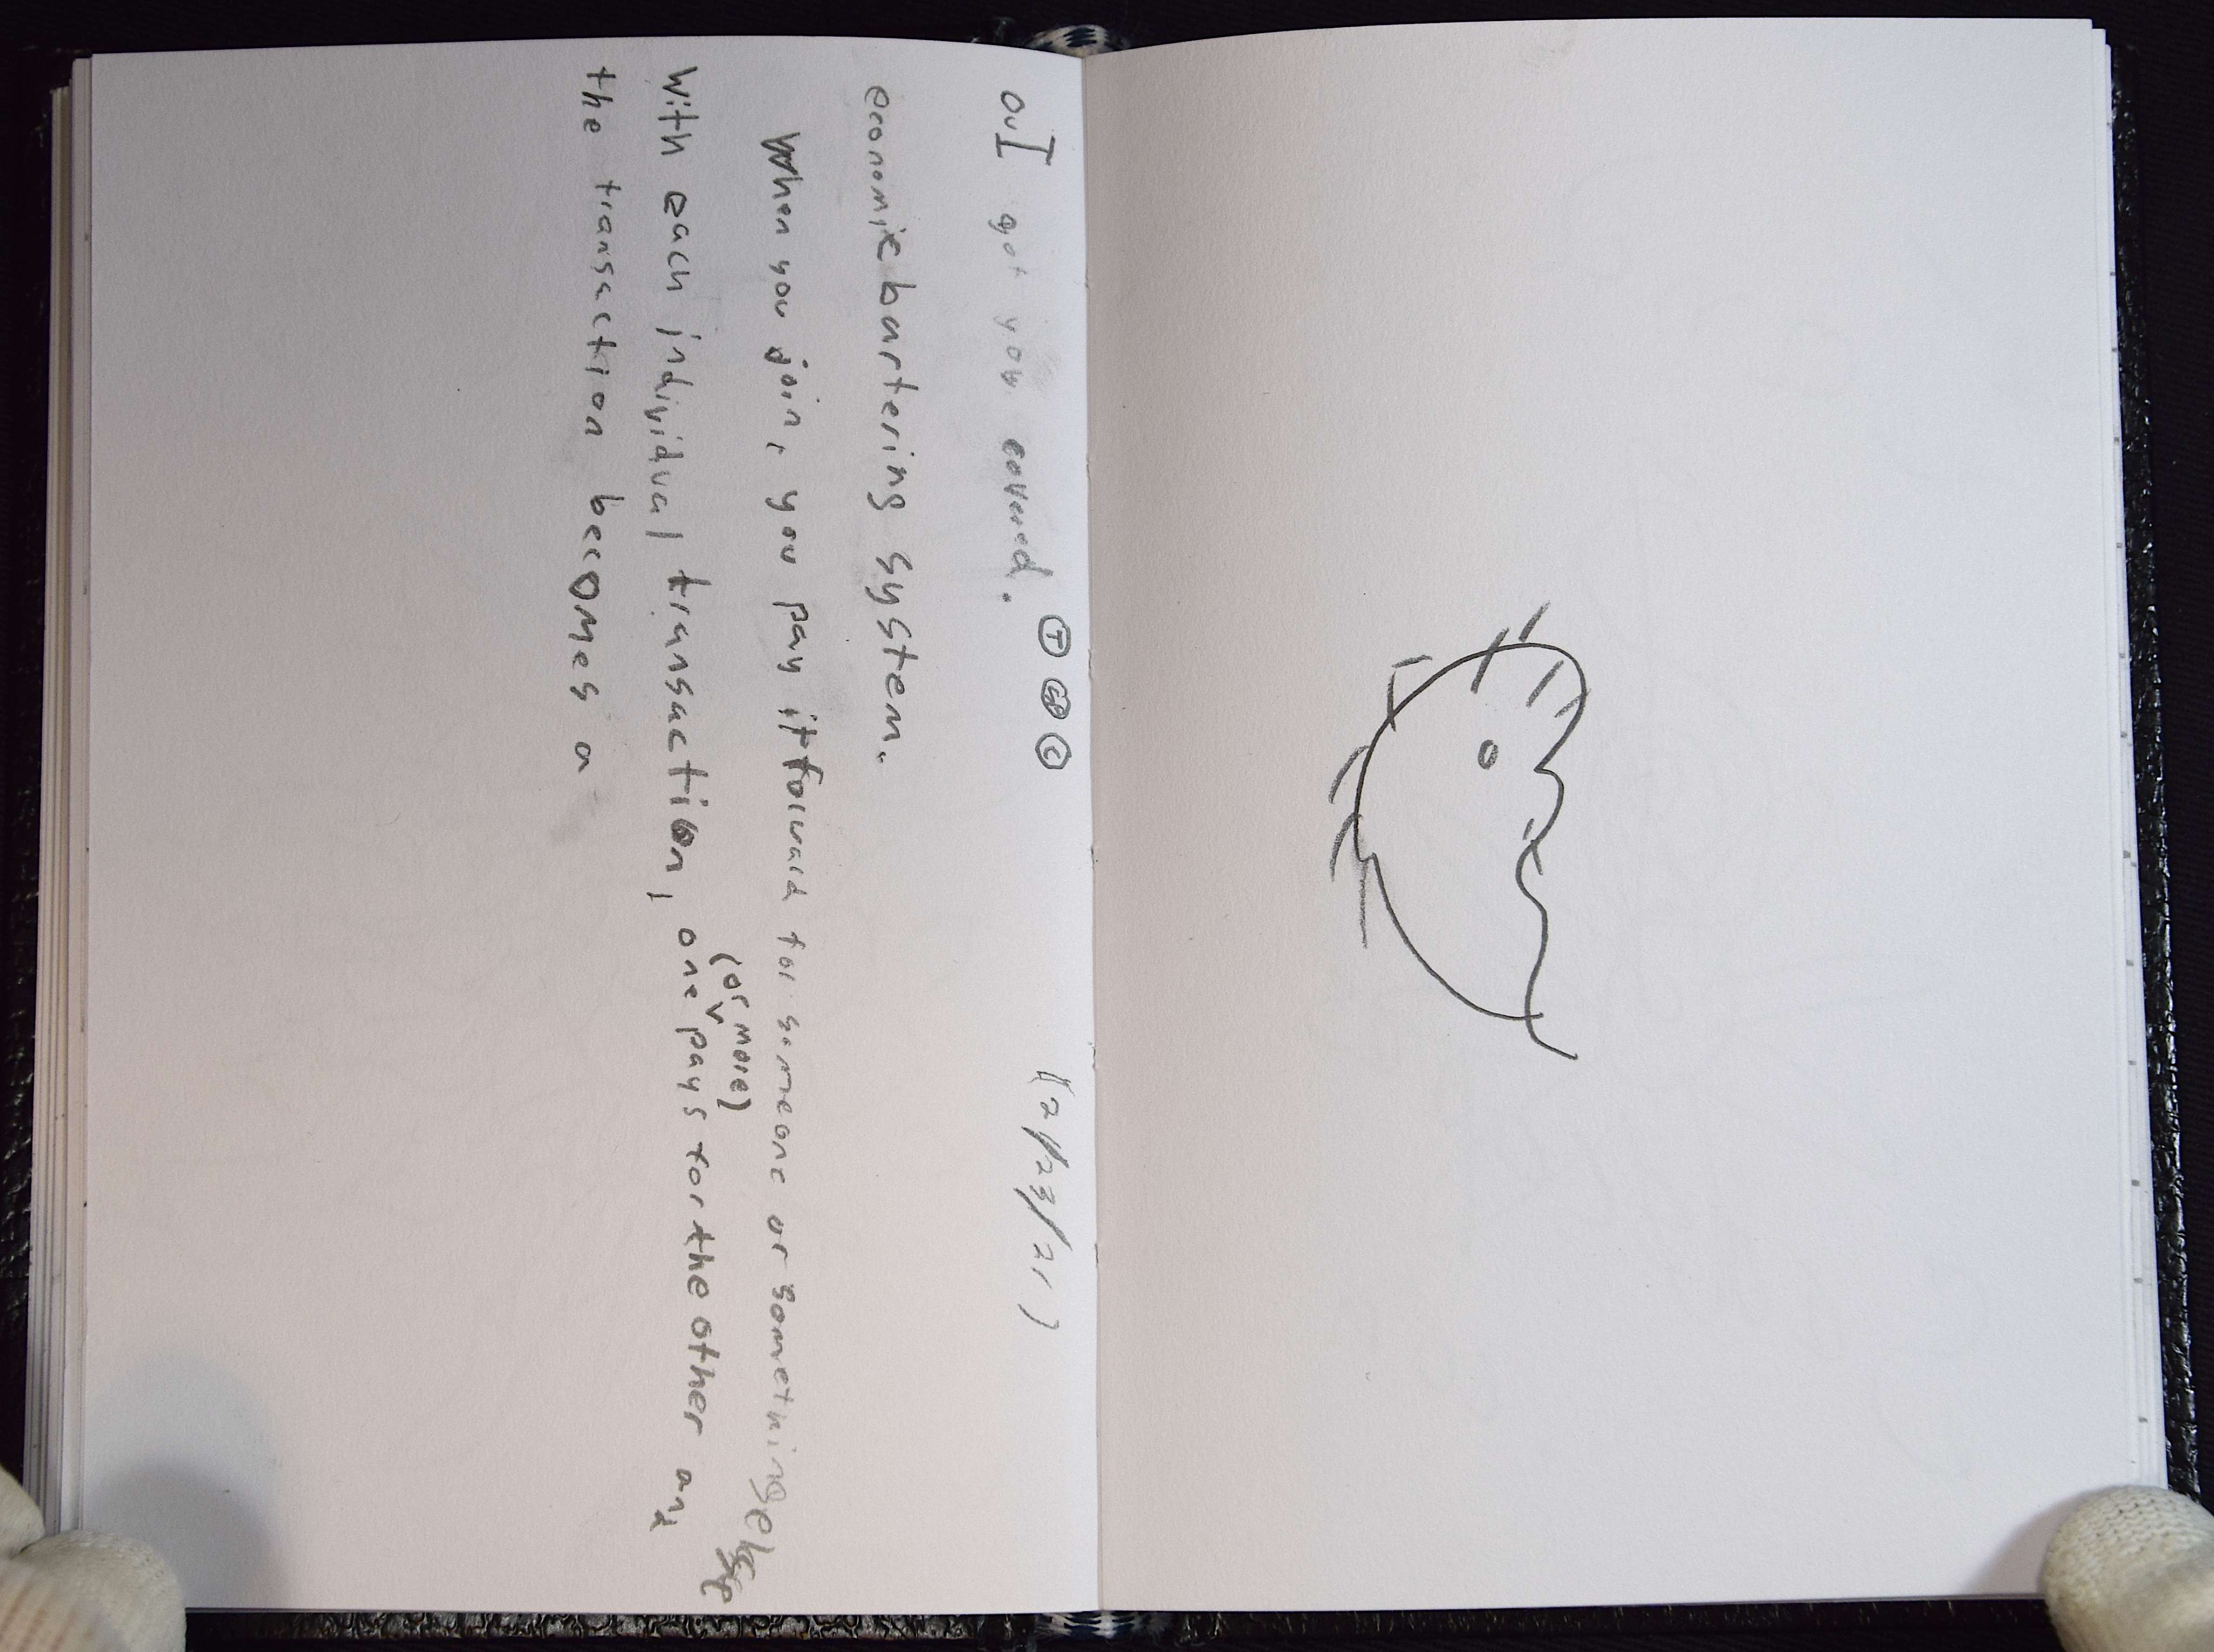 I got you covered. Ⓣ Ⓒ (12/23/21)
economic bartering system.
When you join, you pay it forward for someone or something else
(or more)
With each individual transaction, one pays for the other and
the transaction becomes a